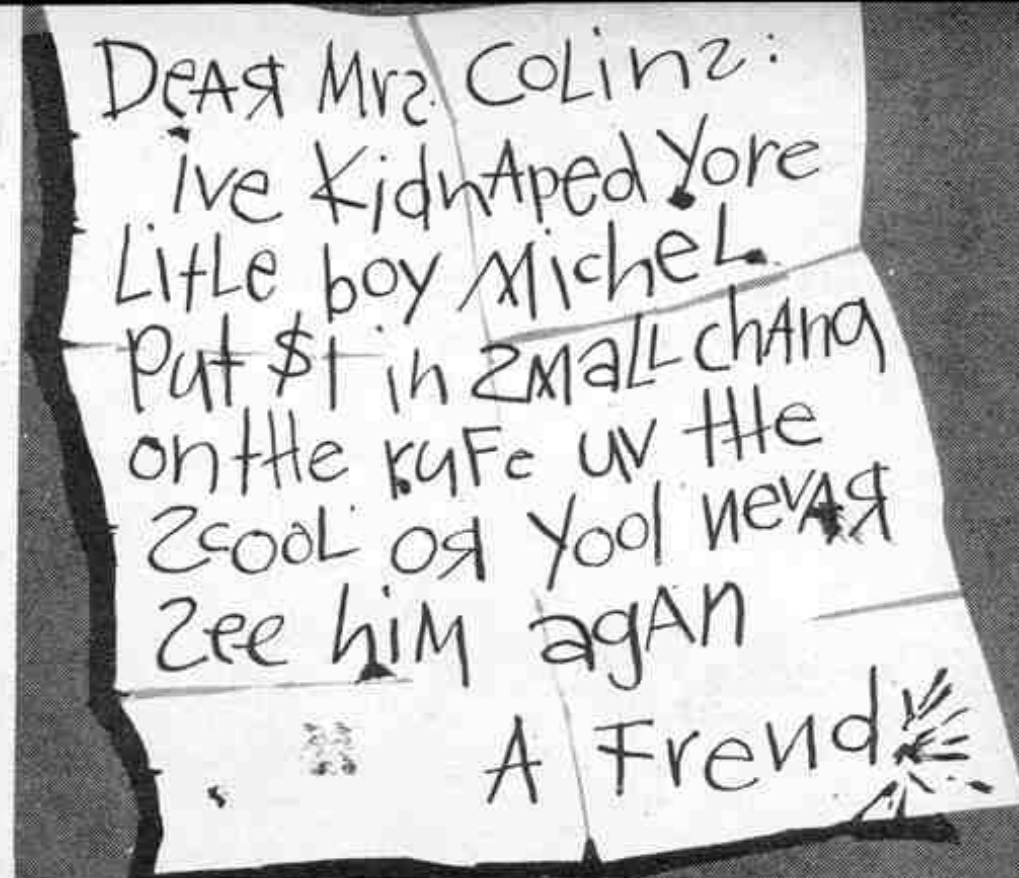 DeAR Mrs. CoLins:
ive KidnAped Yore
LitLe boy MicheL
Put $1 in smaLL chAng
on tHe ruFe uv tHe
scooL oR Yool nevAR
see hiM agAn
A Frend